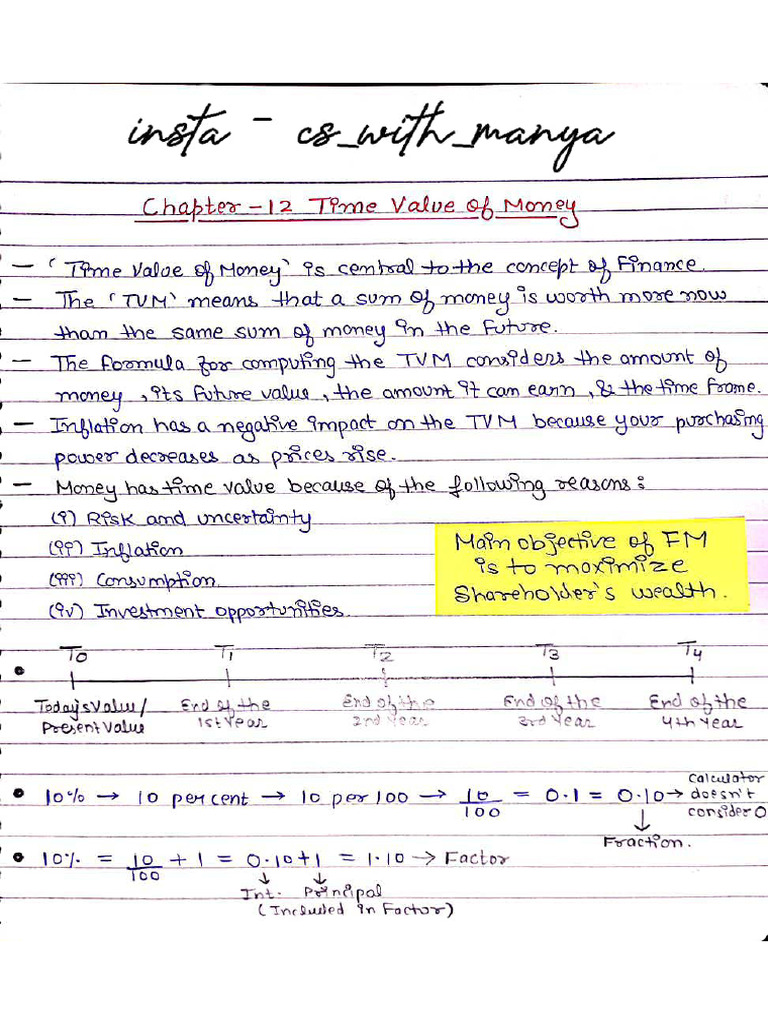 insta - cs_with_manya
Chapter-12 Time Value of Money
- 'Time Value of Money' is central to the concept of Finance.
- The 'TVM' means that a sum of money is worth more now
than the same sum of money in the future.
- The formula for computing the TVM considers the amount of
money, its future value, the amount it can earn, & the time frame.
- Inflation has a negative impact on the TVM because your purchasing
power decreases as prices rise.
- Money has time value because of the following reasons:
(i) Risk and uncertainty
(ii) Inflation
(iii) Consumption
(iv) Investment opportunities.
Main objective of FM
is to maximize
Shareholder's wealth.
T0 T1 T2 T3 T4
Today's Value/ End of the End of the End of the End of the
Present Value 1st Year 2nd Year 3rd Year 4th Year
• 10% → 10 percent → 10 per 100 → 10/100 = 0.1 = 0.10 → calculator doesn't consider 0
↓
Fraction.
• 10% = 10/100 + 1 = 0.10 + 1 = 1.10 → Factor
↓ ↓
Int. Principal
(Included in Factor)